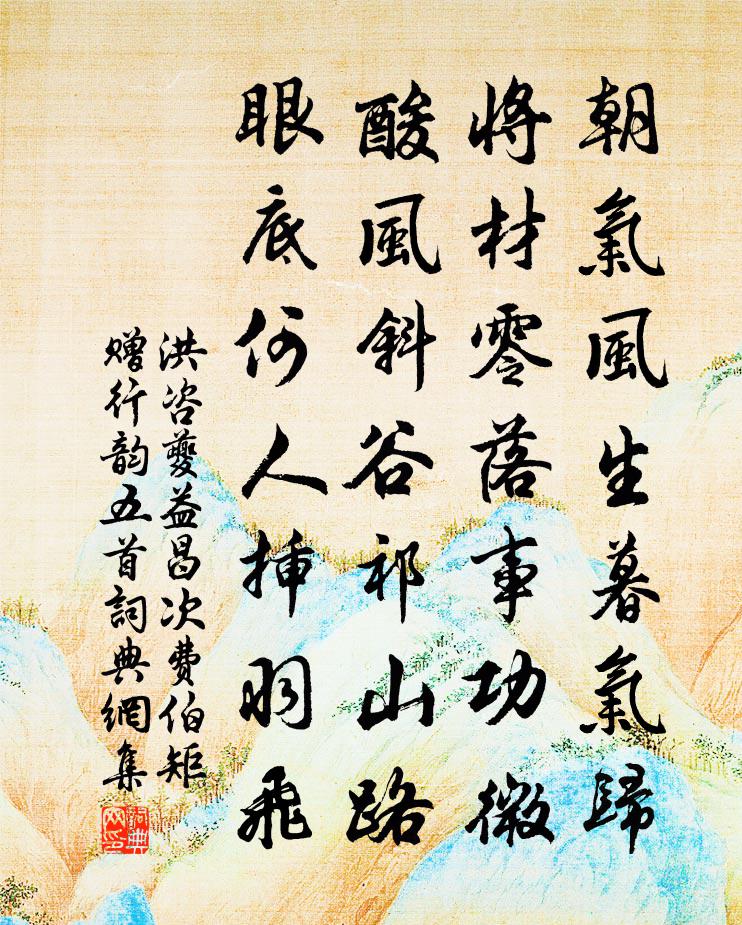 朝氣風生暮氣歸
將材零落事功微
酸風斜谷祁山路
眼底何人插羽飛
洪咨夔益昌次費伯矩
贈行韵五首詞典網集
詞典網印